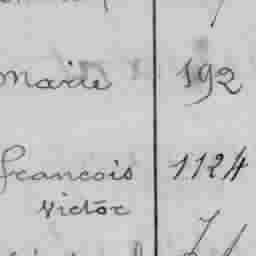 Marie 192
francois 1124
Victor